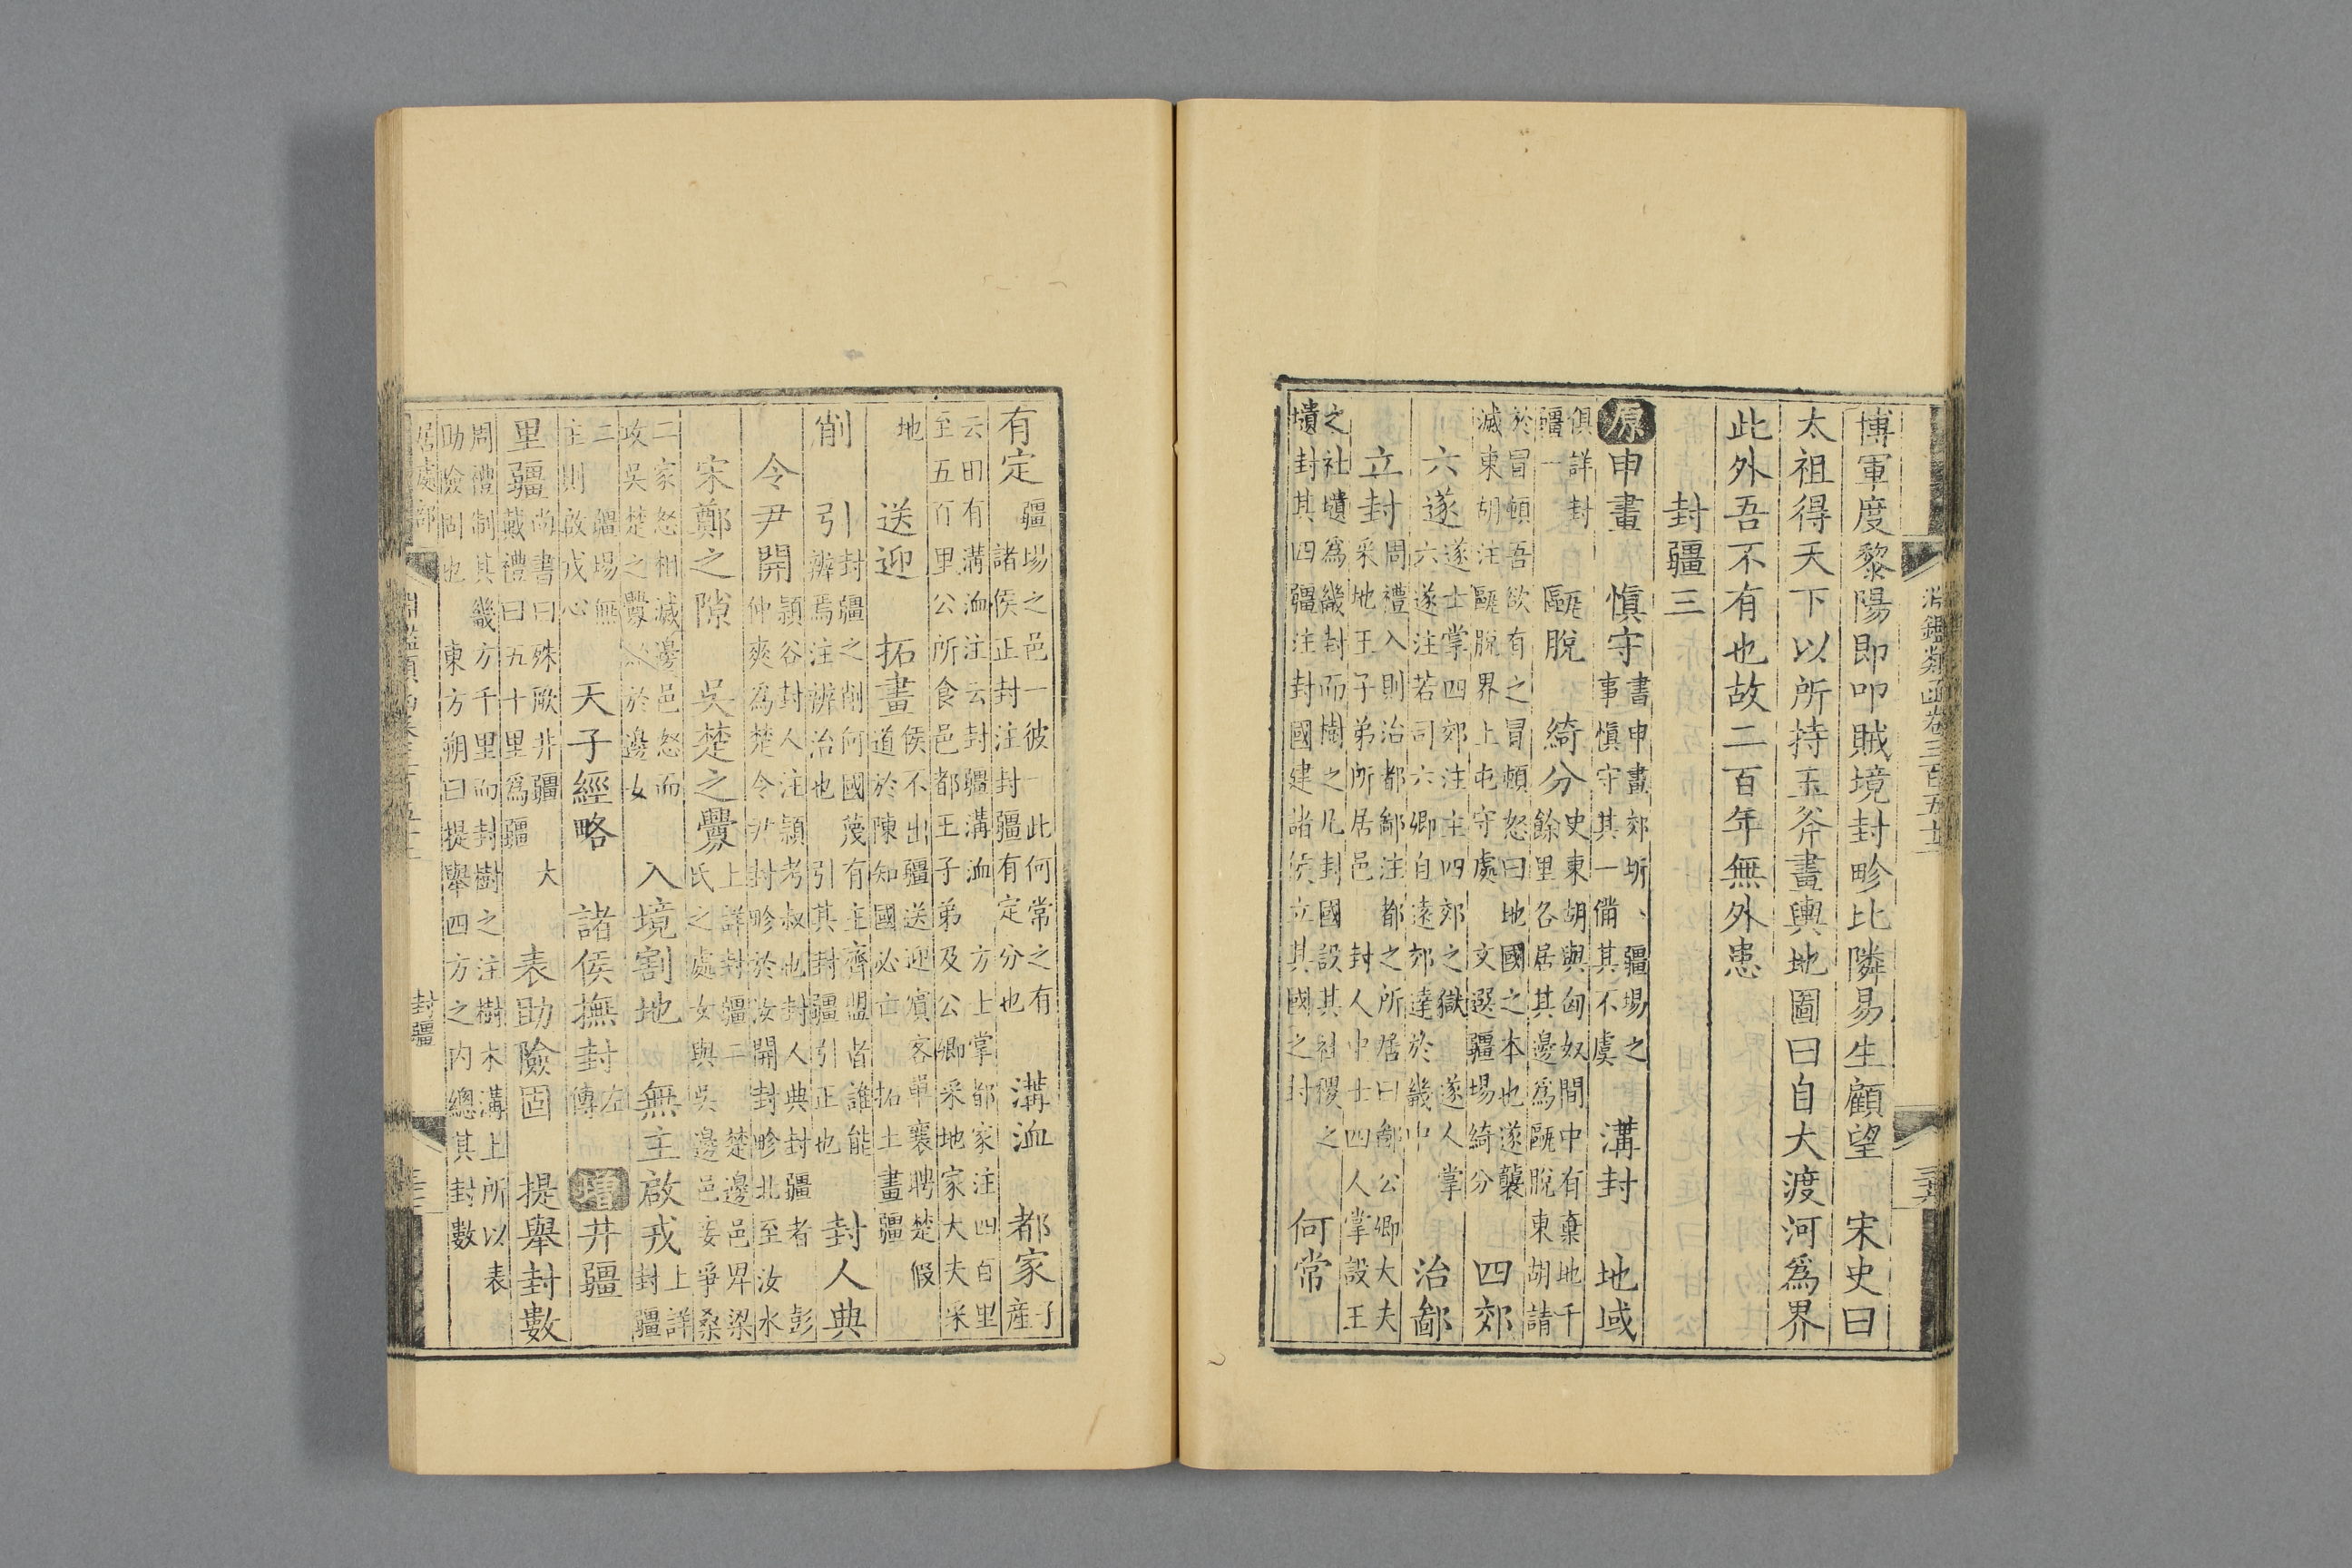 淵鑑類函卷三百五十三
博軍度黎陽即叩賊境封畛比隣易生顧望 宋史曰
太祖得天下以所持玉斧畫輿地圖曰自大渡河爲界
此外吾不有也故二百年無外患
封疆三
原 申畫 愼守 書申畫郊圻 疆埸之 溝封 地域
事愼守其一備其不虞
俱詳封 甌脫 綺分 史東胡與匈奴間中有棄地千
疆一 餘里各居其邊爲甌脫東胡請
於冒頓吾欲有之冒頓怒曰地國之本也遂襲 四郊
滅東胡注甌脫界上屯守處 文選疆埸綺分
六遂 遂士掌四郊注主四郊之獄 遂人掌 治鄙
六遂注若司六鄉自遠郊達於畿中
立封 周禮入則治都鄙注都之所居曰鄙公卿大夫
采地王子弟所居邑 封人中士四人掌設王
之社壝爲畿封而樹之凡封國設其社稷之 何常
壝封其四疆注封國建諸侯立其國之封
有定 疆埸之邑一彼一此何常之有 溝洫 都家 子
諸侯正封注封疆有定分也 產
云田有溝洫注云封疆溝洫 方士掌都家注四百里
至五百里公所食邑都王子弟及公卿采地家大夫采
地 送迎 拓畫 侯不出疆送迎賓客單襄聘楚假
道於陳知國必亡 拓土畫疆
削 引 封疆之削何國蔑有主齊盟者誰能 封人典
引辨焉注辨治也 引其封疆引正也
令尹開 潁谷封人注潁考叔也封人典封疆者 彭
仲爽爲楚令尹封畛於汝開封畛北至汝水
宋鄭之隙 吳楚之釁 上詳封疆二 楚邊邑畀梁
氏之處女與吳邊邑妾爭桑
二家怒相滅邊邑怒而 入境割地 無主啟戎 上詳
攻吳楚之釁 於邊女 封疆
二 疆埸無 天子經略 諸侯撫封 左 增 井疆
主則啟戎心 傳
里疆 尚書曰殊厥井疆 大 表助險固 提舉封數
戴禮曰五十里爲疆
周禮制其畿方千里而封樹之注樹木溝上所以表
助險固也 東方朔曰提舉四方之內總其封數
居處部
封疆